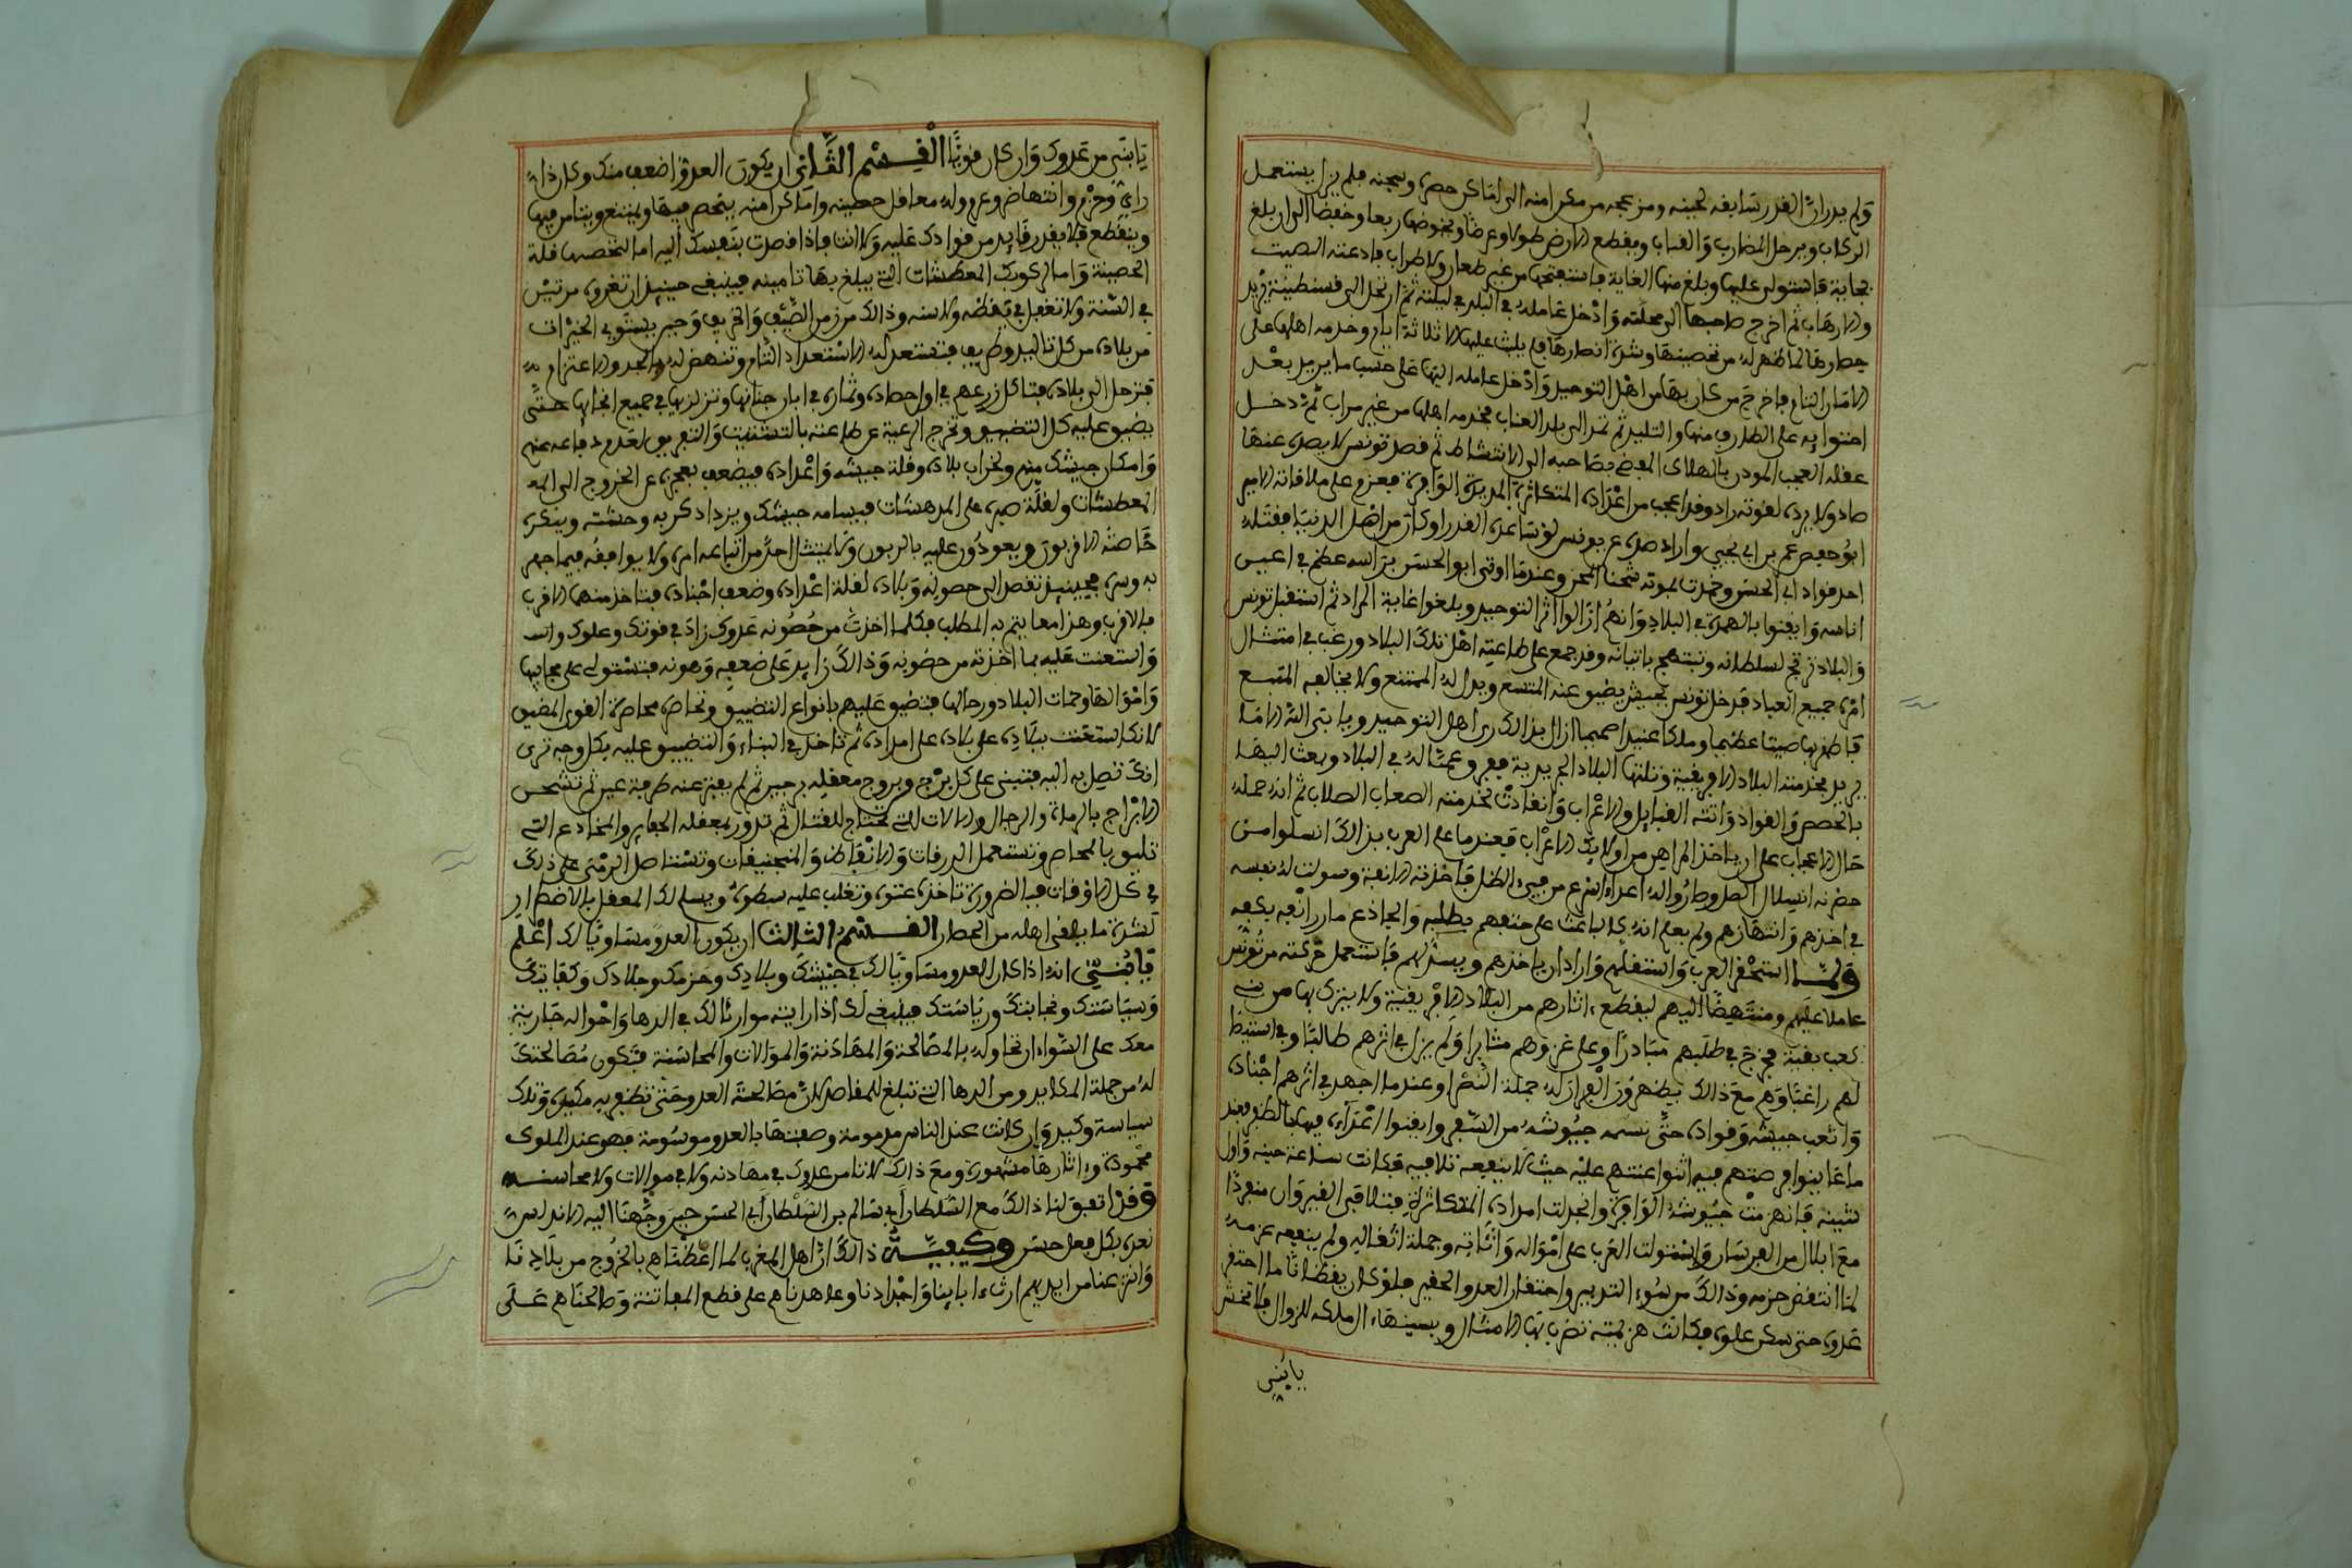 ولم يدر ان القدر سابقه لحينه ومزعجه من مكان امنه الى اماكن حصره وسجنه فلم يزل يستعمل
الركاب ويرحل المضارب والقباب ويقطع الارض طولا وعرضا ويخوضها ربعا وخفضا الى ان بلغ
بجاية فاستولى عليها وبلغ منها الغاية فاستفتحها من غير طعان ولا ضراب فادعته الصيت
والارهاب ثم اخرج صاحبها الى محلته وادخل عامله في البلد في ليلته ثم ارتحل الى قسنطينة فنزل
حصارها لما ظهر له من تحصينها وشدة انصارها فلم يلبث عليها الا ثلاثة ايام وخدمه اهلها على
الامان التام فاخرج من كان بها من اهل التوحيد وادخل عامله اليها على حسب ما يريد بعد
احتوايه على الطارف منها والتليد ثم نهد الى بلد العناب فخدمه اهلها من غير مراب ثم دخل
عقله العجب المودن بالهلاك المفضي بصاحبه الى الانتشاط ثم قصد تونس لا يصده عنها
صاد ولا يرده لقوته راد وقد اعجب من اعداده المتكاثرة المديدة الوافرة فعزم على ملاقاته الامير
ابو حفص عمر بن ابي يحيى واراد صده عن تونس لو ساعده القدر او كان من اهل الدنيا فقتله
احد قواد ابي الحسن وخمدت بموته شحنا المحن وعندما اوتي ابو الحسن براسه عظم في اعين
اناسه وايقنوا بالهمدة في البلاد وانهم ازالوا اثر التوحيد وبلغوا غاية المراد ثم استقبل تونس
والبلاد ترتج لسلطانه وتبتهج باتيانه وقد جمع على طاعته اهل تلك البلاد ورغب في امتثال
امره جميع العباد فدخل تونس بجيش يضيق عنه المتسع ويدل له الممتنع ولا يخالفه المتبع
فاظهر بها صيتا عظيما وملكا عتيدا صميما ازال بذالك رين اهل التوحيد ويابى الله الا ما
يريد فخدمته البلاد الافريقية وتلتها البلاد الجريدية ففرق عماله في البلاد وبعث اليها
بالحصص والقواد واتته القبايل والاعراب وانقادت لخدمته الصعاب الصلاب ثم انه حمله
حال الاعجاب على ان ياخذ المراهن من اولايك الاعراب فعندما علم العرب بذالك انسلوا من
حضرته انسلال الصل وصاروا له اعداء اسرع من فيء الظل فاخذته الانفة وسولت له نفسه
في اخذهم وانتهازهم ولم يعلم انه كالباعث على حتفهم بظلفه والجاذع مارن انفه بكفه
ولما استحقر العرب واستقلهم واراد ان ياخذهم ويستذلهم فاستعمل حركته من تونس
عاملا عليهم ومنتهضا اليهم ليقطع اثارهم من البلاد الافريقية ولا يترك بها من بني
كعب بقية فخرج في طلبهم مبادرا وعلى غزوهم مثابرا ولم يزل في اثرهم طالبا وفي استيذا
لهم راغبا وهم مع ذالك يظهرون الفرار له جملة النصرا وعندما اجهد في اثرهم اجناده
واتعب جيشه وقواده حتى نسمه جيوشه من السفر وايقنوا اعداءه فيها بالظفر بعد
ما عاينوا فرصتهم فيه اثنوا اعنتهم عليه حيث لا ينفعه تلافيه فكانت ساعة حينه واول
شينه فانهزمت جيوشه الوافرة وانجدلت امداده المتكاثرة فبتلافى القيروان منفردا
مع ابلال من الفرسان واستولت العرب على امواله واثاثه وجملة اثقاله ولم ينفعه عزمه
لما انتقض حزمه وذالك من سوء التدبير واحتقار العدو الحقير فلو كان يقظانا ما احتقر
عدوه حتى سكن علوه فكانت هزيمته تضرب بها الامثال وبسببها ءال ملكه للزوال فلا تحقر
يابني
يابني من عدوك وان كان قويا القسم الثاني ان يكون العدو اضعف منك وكان ذا
راي وحزم وانتهاض وعزم وله معاقل حصينة واماكن امنه يتحصن فيها ويمتنع ويتامن فيها
وينقطع فلا يقدر قايد من قوادك عليه ولا انت فاذا قصدت بنفسك اليه اما لتحصنه بقلة
الحصينة واما لركوبك المعطشات التي يبلغ بها تامينه فينبغي حينيذ ان تغزوه مرتين
في السنة ولا تغفل في يقظه ولا سنه وذالك من زمن الصيف والخريف وحين يستوي الخيرات
من بلاده من كل تاليد وطريف فتستعد له الاستعداد التام وتنهض له بالجد والاعتزام
فتنزل الى بلاده فتاكل زرعهم في اول حصاده وثماره في ابان جناتها وتنزل بها في جميع انحايها حتى
يضيق عليه كل التضييق وتخرج الرعية عن طاعته بالتشتيت والتفريق لعدم دفاعه عنهم
وامكان جيشك منهم ولخراب بلاده وقلة جيشه واعداده فيضعف بعجزه عن الخروج الى المه
المعطشات ولقلة صبره على المدهشات فيسامه جيشك ويزداد كربه وحشته وينكره
خاصته الاقربون ويعودون عليه بالربون ولا يمتثل احد من اتباعه امره ولا يوافقه فيما جهر
به وسره فحينيذ تقصد الى حصونه وبلاده لقلة اعداده وضعف اجناده فتاخذ منها الاقرب
فالاقرب وهذا مما يتم به المطلب فكلما اخذت من حصونه عدوك زاد في قوتك وعلوك وانت
واستعنت عليه بما اخذته من حصونه وذالك زايد على ضعفه وهونه فتستولي على مجابيها
واموالها وحمات البلاد ورجالها فتضيق عليهم بانواع التضييق وتحاصره محاصرة القوي المضيق
لانك استعنت ببلاده على بلاده على امداده ثم تاخذ في البناء والتضييق عليه بكل وجه ترى
انك تصل به اليه فتبني على كل برج وبروج معقله برجين ثم لم يغب عنه طرفة عين ثم تشحن
الابراج بالرماة والرجال والالات التي تحتاج للقتال ثم تدور بمعقله الحفاير والمخادع التي
تليق بالمحاصر وتستعمل الدرقات والانقاض والمنجنيقات وتستاصل الرمي على ذلك
في كل الاوقات فبالضرورة تاخذ عنوة وتغلب عليه سطوة ويسلم لك المعقل بالاضطرار
لشدة ما يلقى اهله من الحصار القسم الثالث ان يكون العدو مساويا لك اعلم
يابني انه اذا كان العدو مساويا لك في جيشك وبلادك وحزمك وجلادك وكفايتك
وسياستك ونجابتك ورياستك فينبغي لك اذا رايته موازنا لك في الدها واحواله جارية
معك على السواء ان تحاوله بالمصالحة والمهادنة والموالات والمحاسنة فتكون مصالحتك
له من جملة المكايد ومن الدها التي تبلغ للمقاصد لان مصالحة العدو حتى تظفر به مكيدة وتلك
سياسة وكيد وان كانت عند الناس مذمومة وصفتها بالعدو موسومة فهو عند الملوك
محمودة واثارها مشهورة ومع ذالك لا تامن عدوك في مهادنه ولا في موالات ولا محاسنه
وقد اتفق لنا ذالك مع السلطان ابي سالم بن السلطان ابي الحسن حين وجهنا اليه الاندلس
نعده بكل فعل حسن وكيفية ذالك ان اهل المغرب لما اعطيناهم بالخروج من بلادنا
وانتزعنا من ايديهم ارث ءابابنا واجدادنا وعاهدناهم على قطع المفاتنة وصالحناهم على